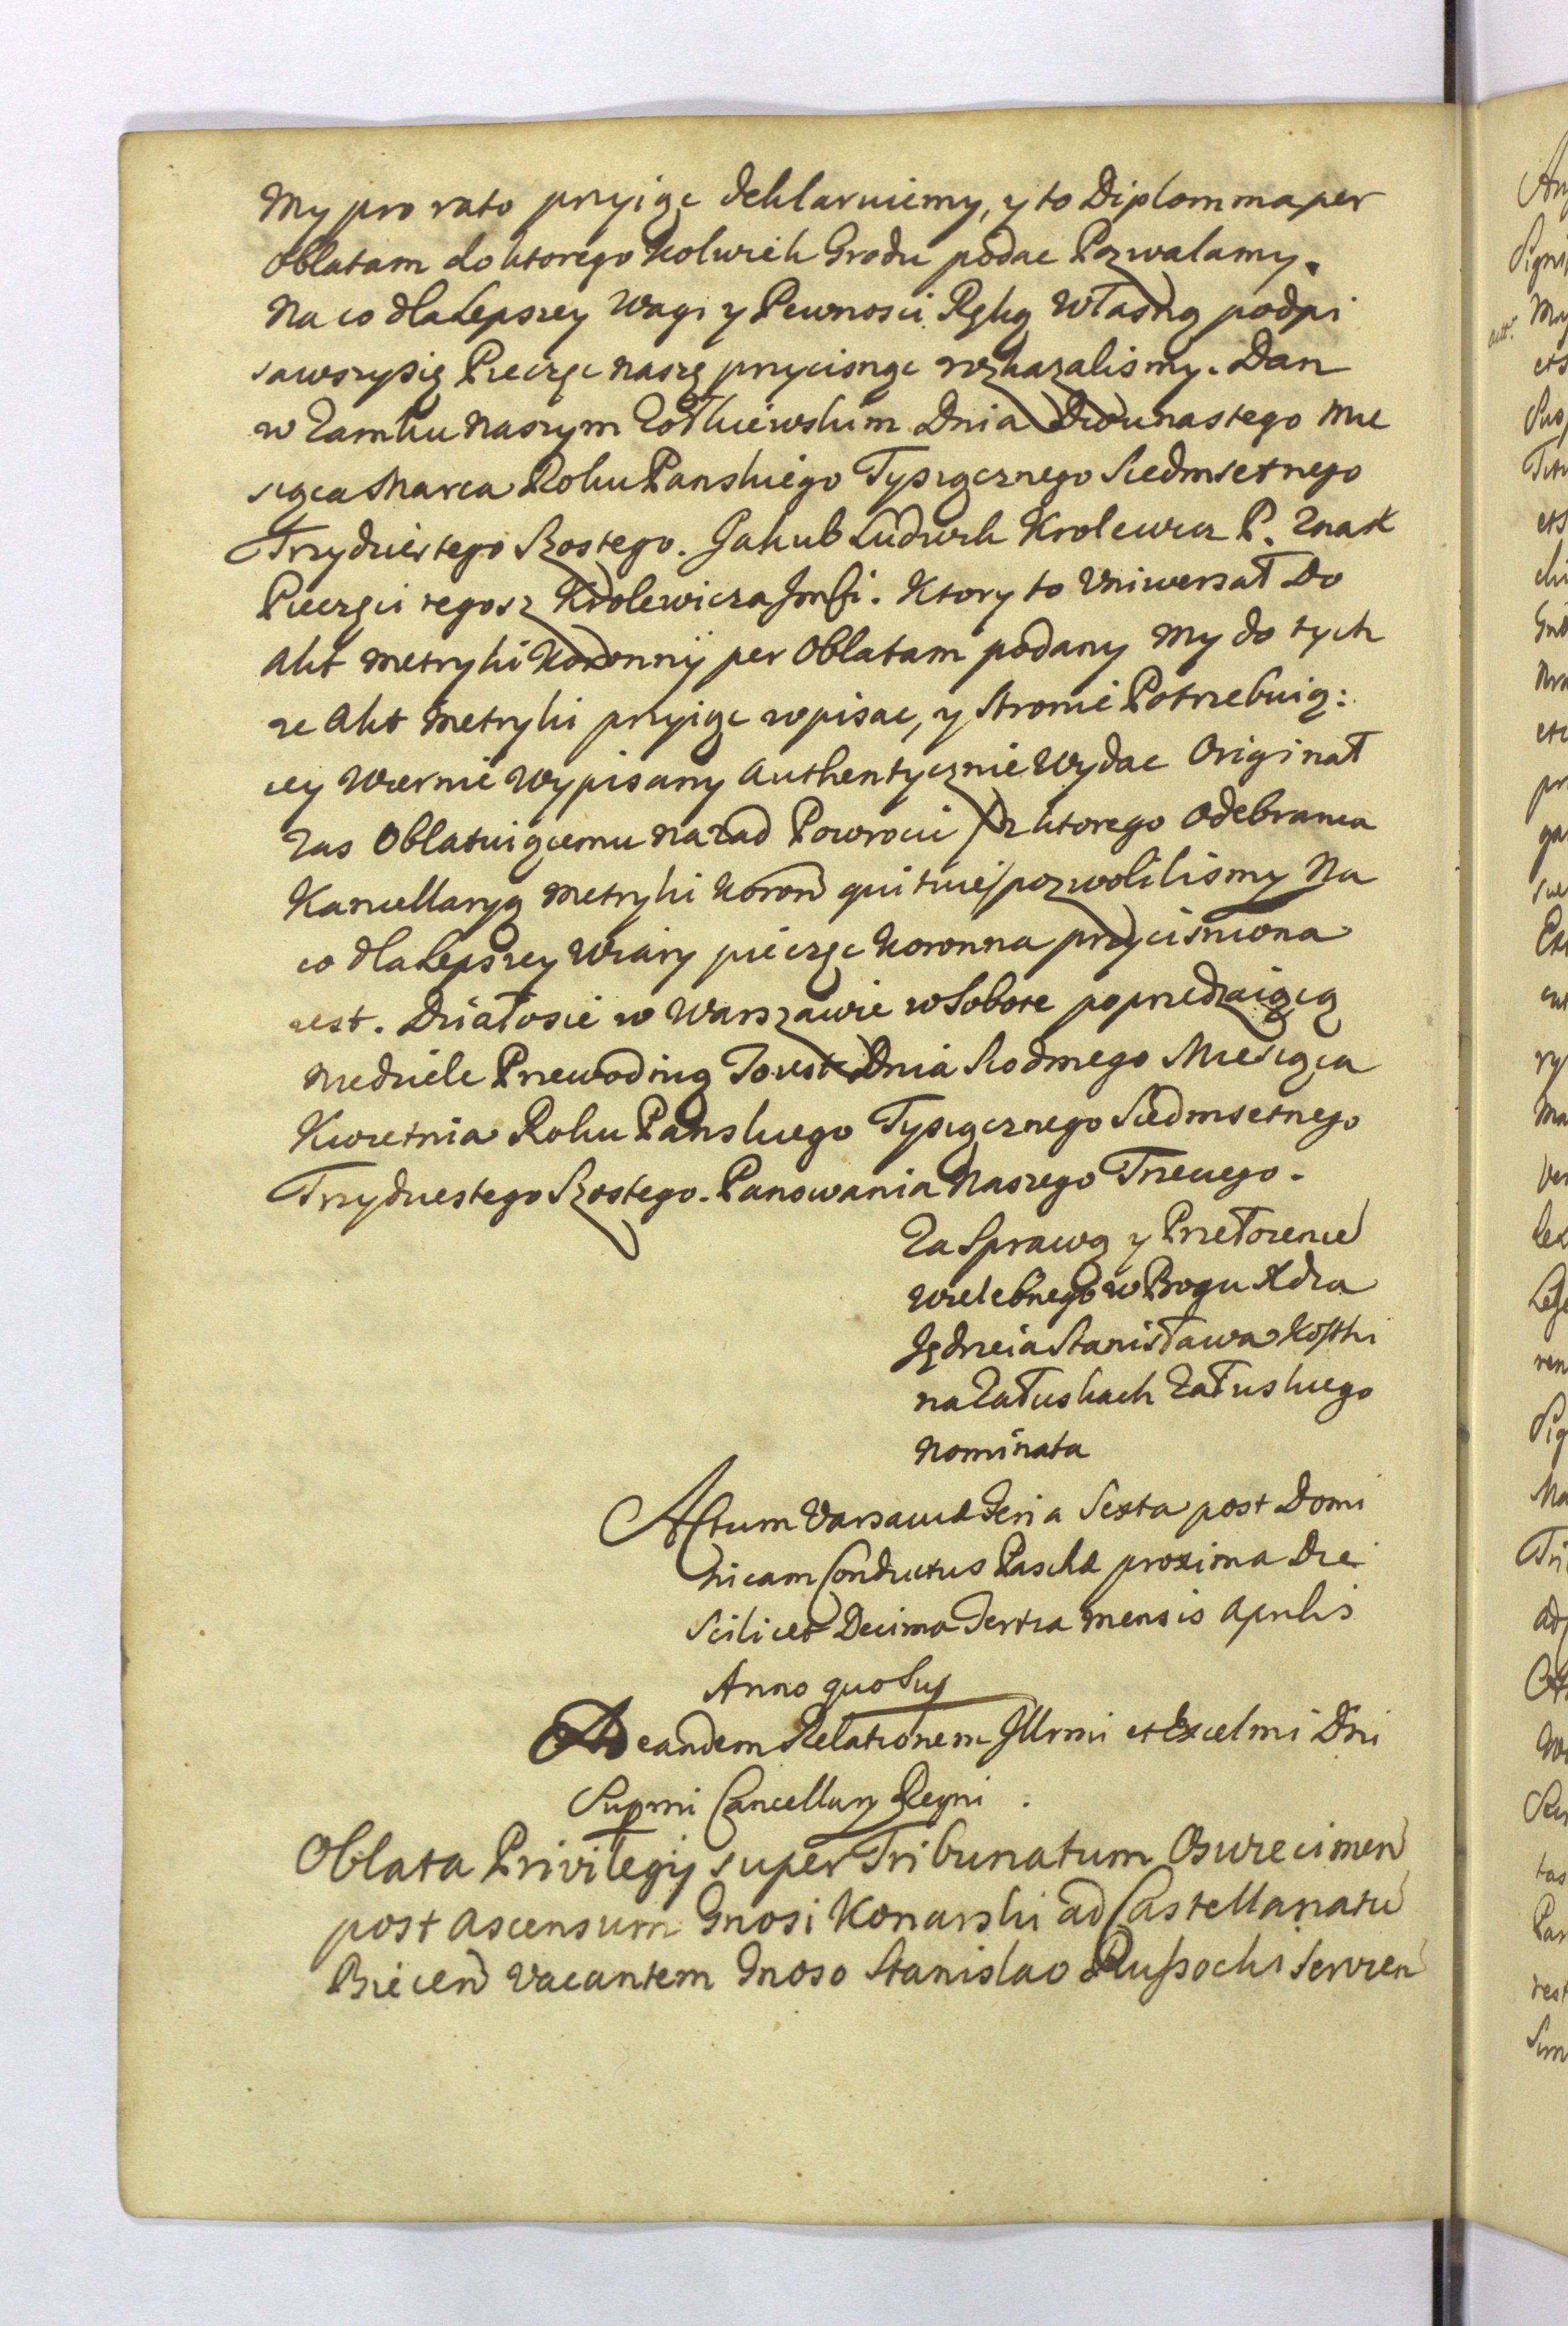 My pro rato przyiąc deklaruiemy, y to Diplomma per
Oblatam do ktorego kolwiek Grodu podac Pozwalamy.
Na co dla Lepszey Wagi y Pewnosci Ręką Własną podpi
sawszysię Pieczęc naszę przycisnąc rozkazalismy. Dan
w Zamku Naszym Zołkiewskim Dnia Dwunastego Mie
siąca Marca Roku Panskiego Tysiącznego Siedmsetnego
Trzydziestego Szostego. Jakub Ludwik Krolewicz P. Znak
Pieczęci tegosz Krolewicza Jmsci. Ktory to Uniwersał Do
Akt Metryki Koronnÿ per Oblatam podany My do tych
ze Akt Metryki przyiąc wpisac, y Stronie Potrzebuią:
cey Wiernie Wypisany Authentycznie Wydac Originał
Zas Oblatuiącemu Nazad Powrocic /z ktorego Odebrania
Kancellaryą Metryki Koron quituie/ pozwolilismy Na
co dla Lepszey Wiary pieczęc Koronna przycisniona
iest. Działosie w Warszawie w Sobote poprzedzaiącą
Niedziele Przewodnią To iest Dnia Siodmego Miesiąca
Kwietnia Roku Panskiego Tysiącznego Siedmsetnego
Trzydziestego Szostego. Panowania Naszego Trzeciego.
Za Sprawą y Przełozenie
Wielebnego w Bogu Xdza
Jędrzeia Stanisława Kostki
na Załuskach Załuskiego
Nominata
Actum Varsaviæ Feria Sexta post Domi
nicam Conductus Paschæ proxima Die
Scilicet Decima Tertia Mensis Aprilis
Anno quo Sup
Ad eandem Relationem Illrmi et Excelmi Dni
Supmi Cancellarÿ Regni.
Oblata Privilegÿ super Tribunatum Oswiecimen
post Ascensum Gnosi Konarski ad Castellanatu
Biecen Vacantem Gnoso Stanislao Russocki Servien